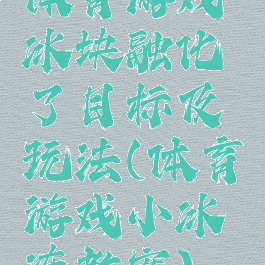 体育游戏
冰块融化
了目标及
玩法(体育
游戏小冰